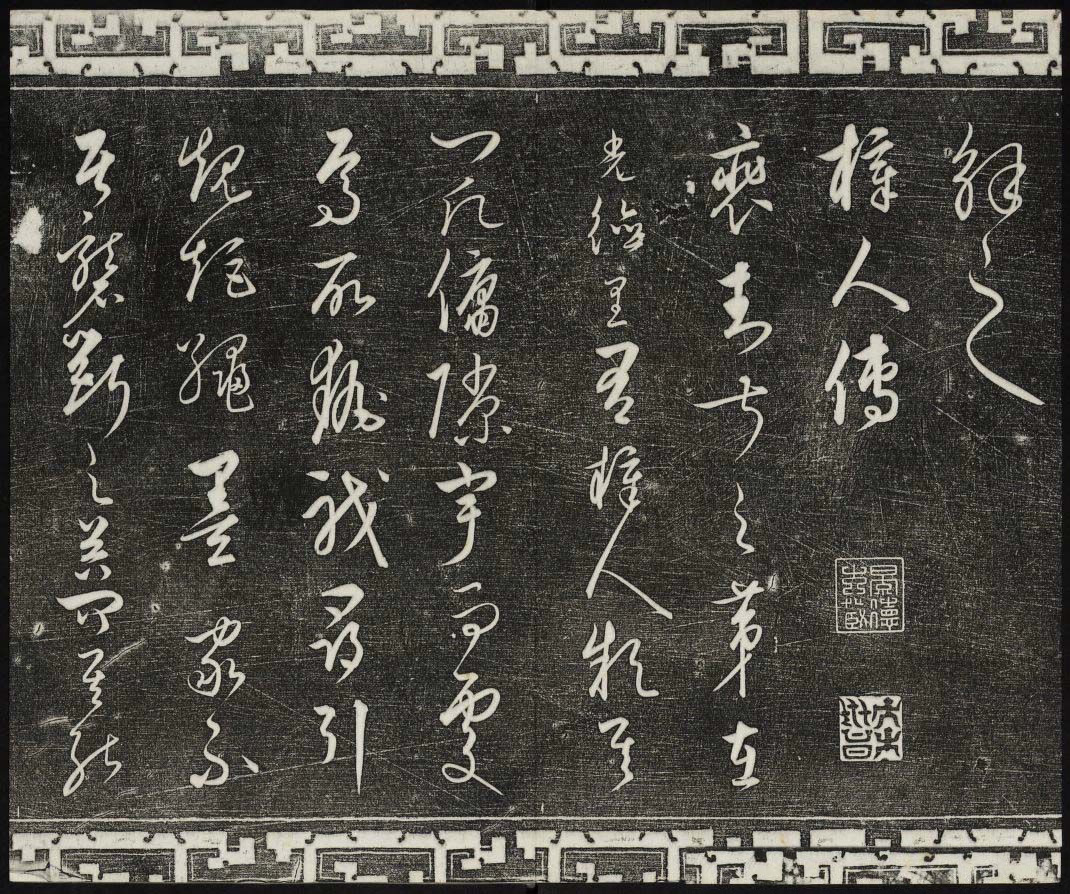 解之
梓人傳
裴封叔之第在
光德里有梓人款其
門願傭隙宇而處
焉所執職尋引
規矩繩墨家不
居礱斲之器問其能